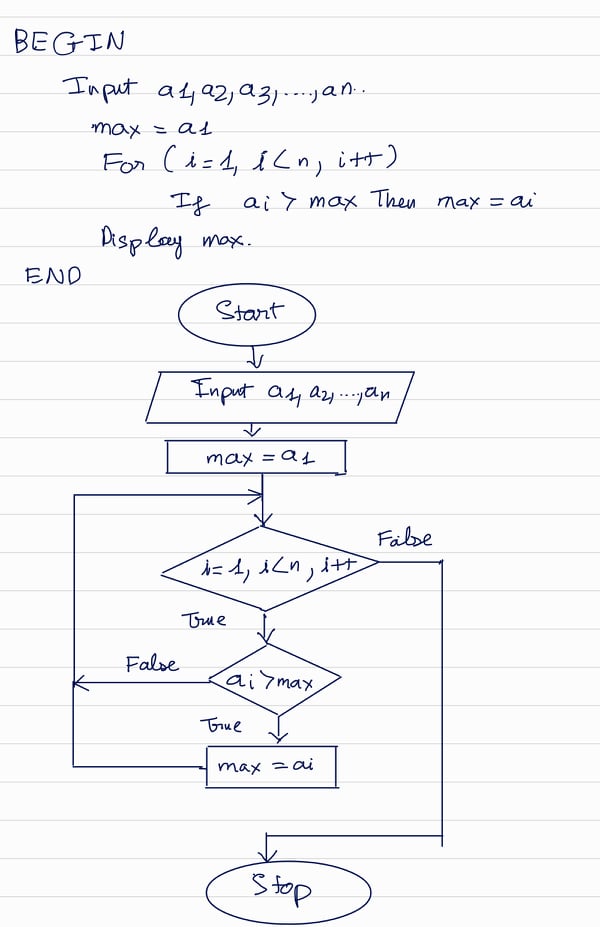 BEGIN
Input a1, a2, a3, ...., an..
max = a1
For (i=1, i<n, i++)
If ai > max Then max = ai
Display max.
END
Start
Input a1, a2, ...., an
max = a1
False
i=1, i<n, i++
True
False
ai>max
True
max = ai
Stop